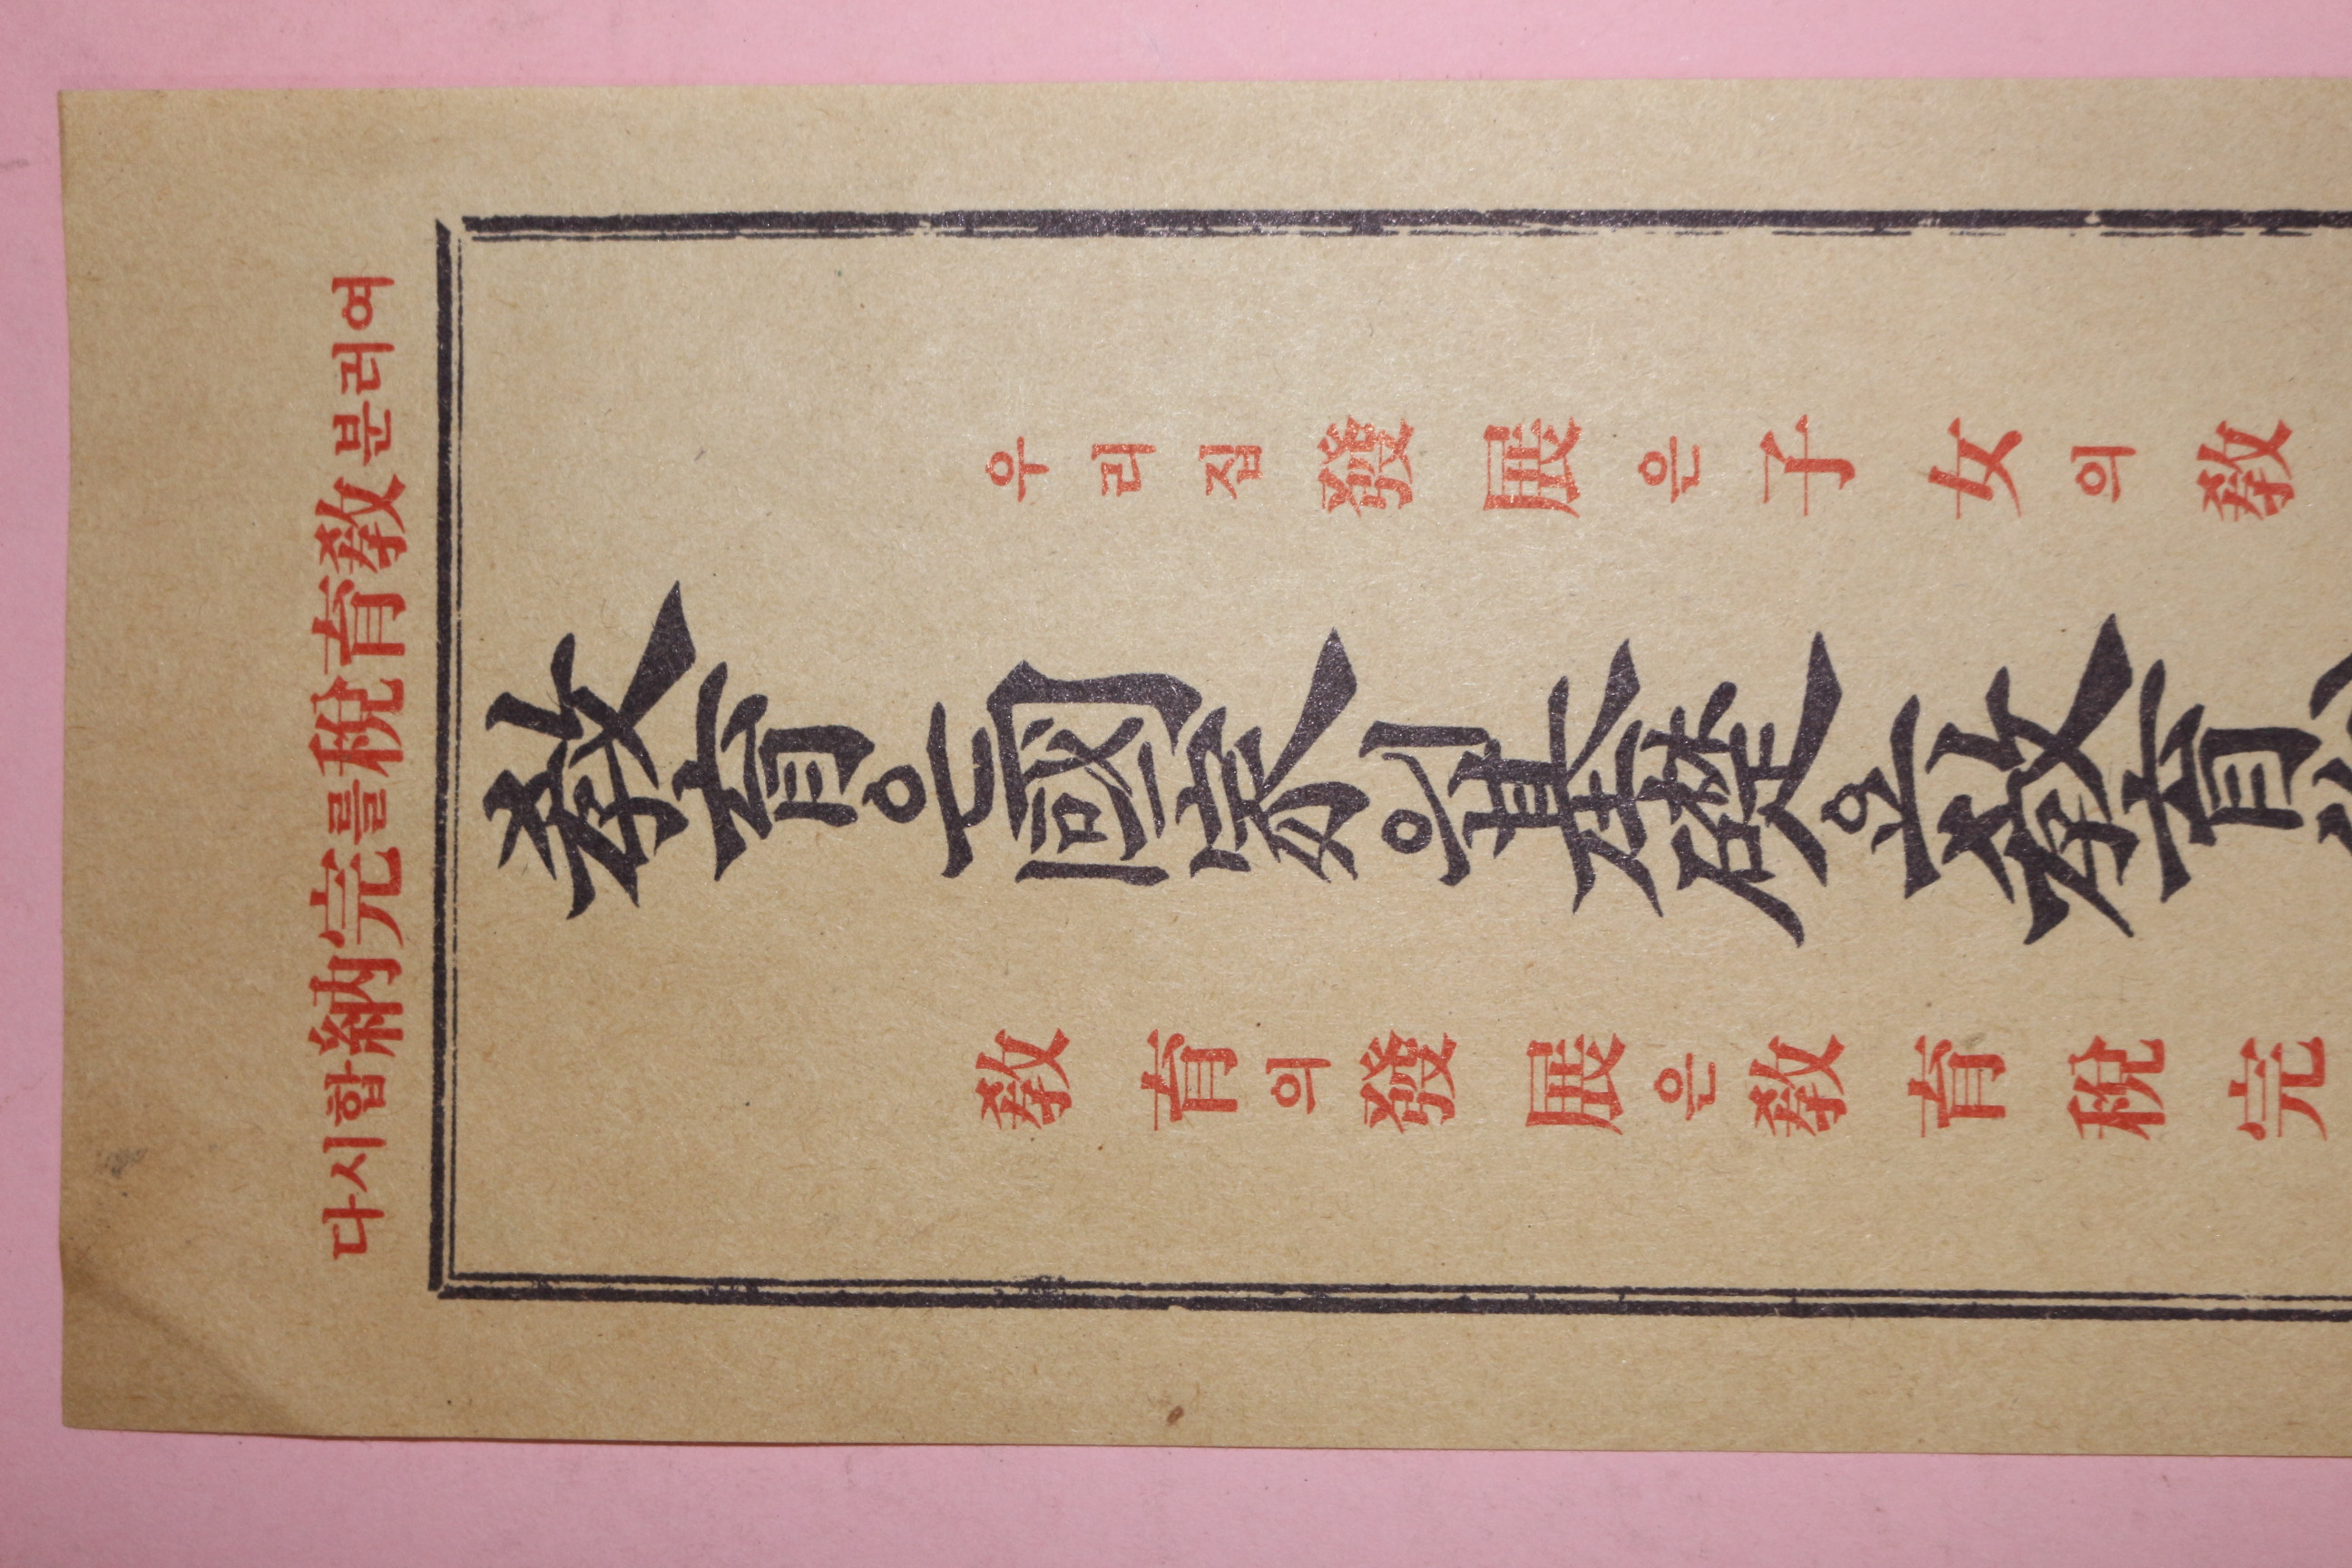 여러분敎育稅를完納합시다
우리집發展은子女의敎
敎育은國家의基礎오敎育
敎育의發展은敎育稅完